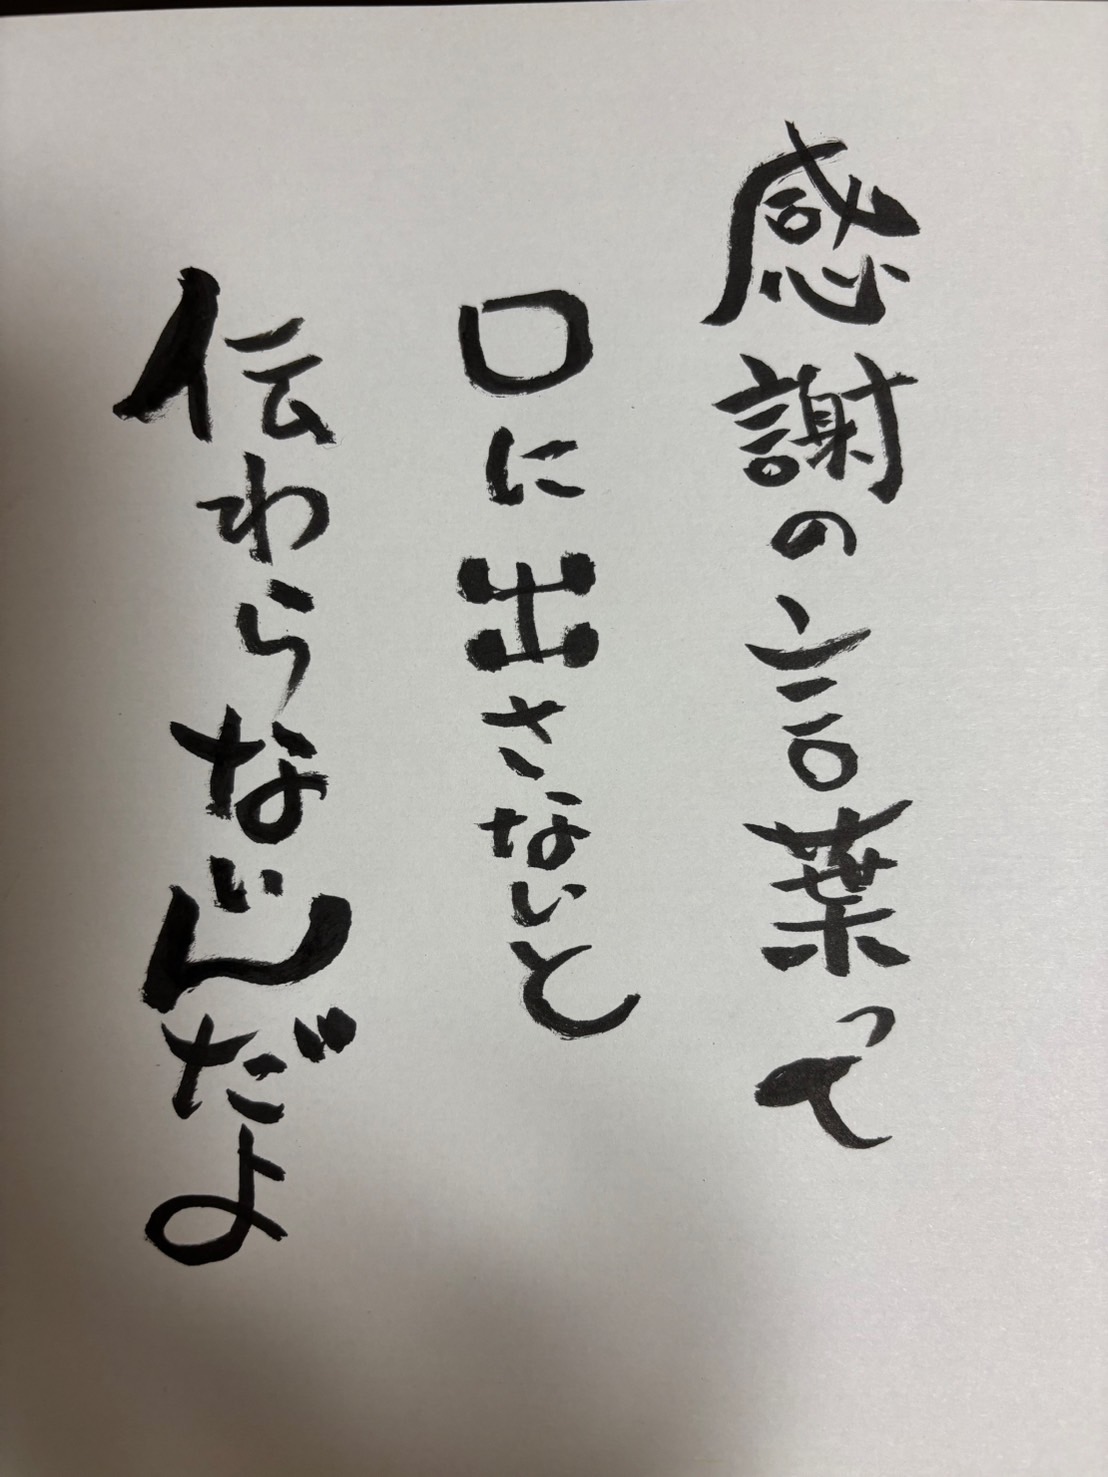 感謝の言葉って
口に出さないと
伝わらないんだよ